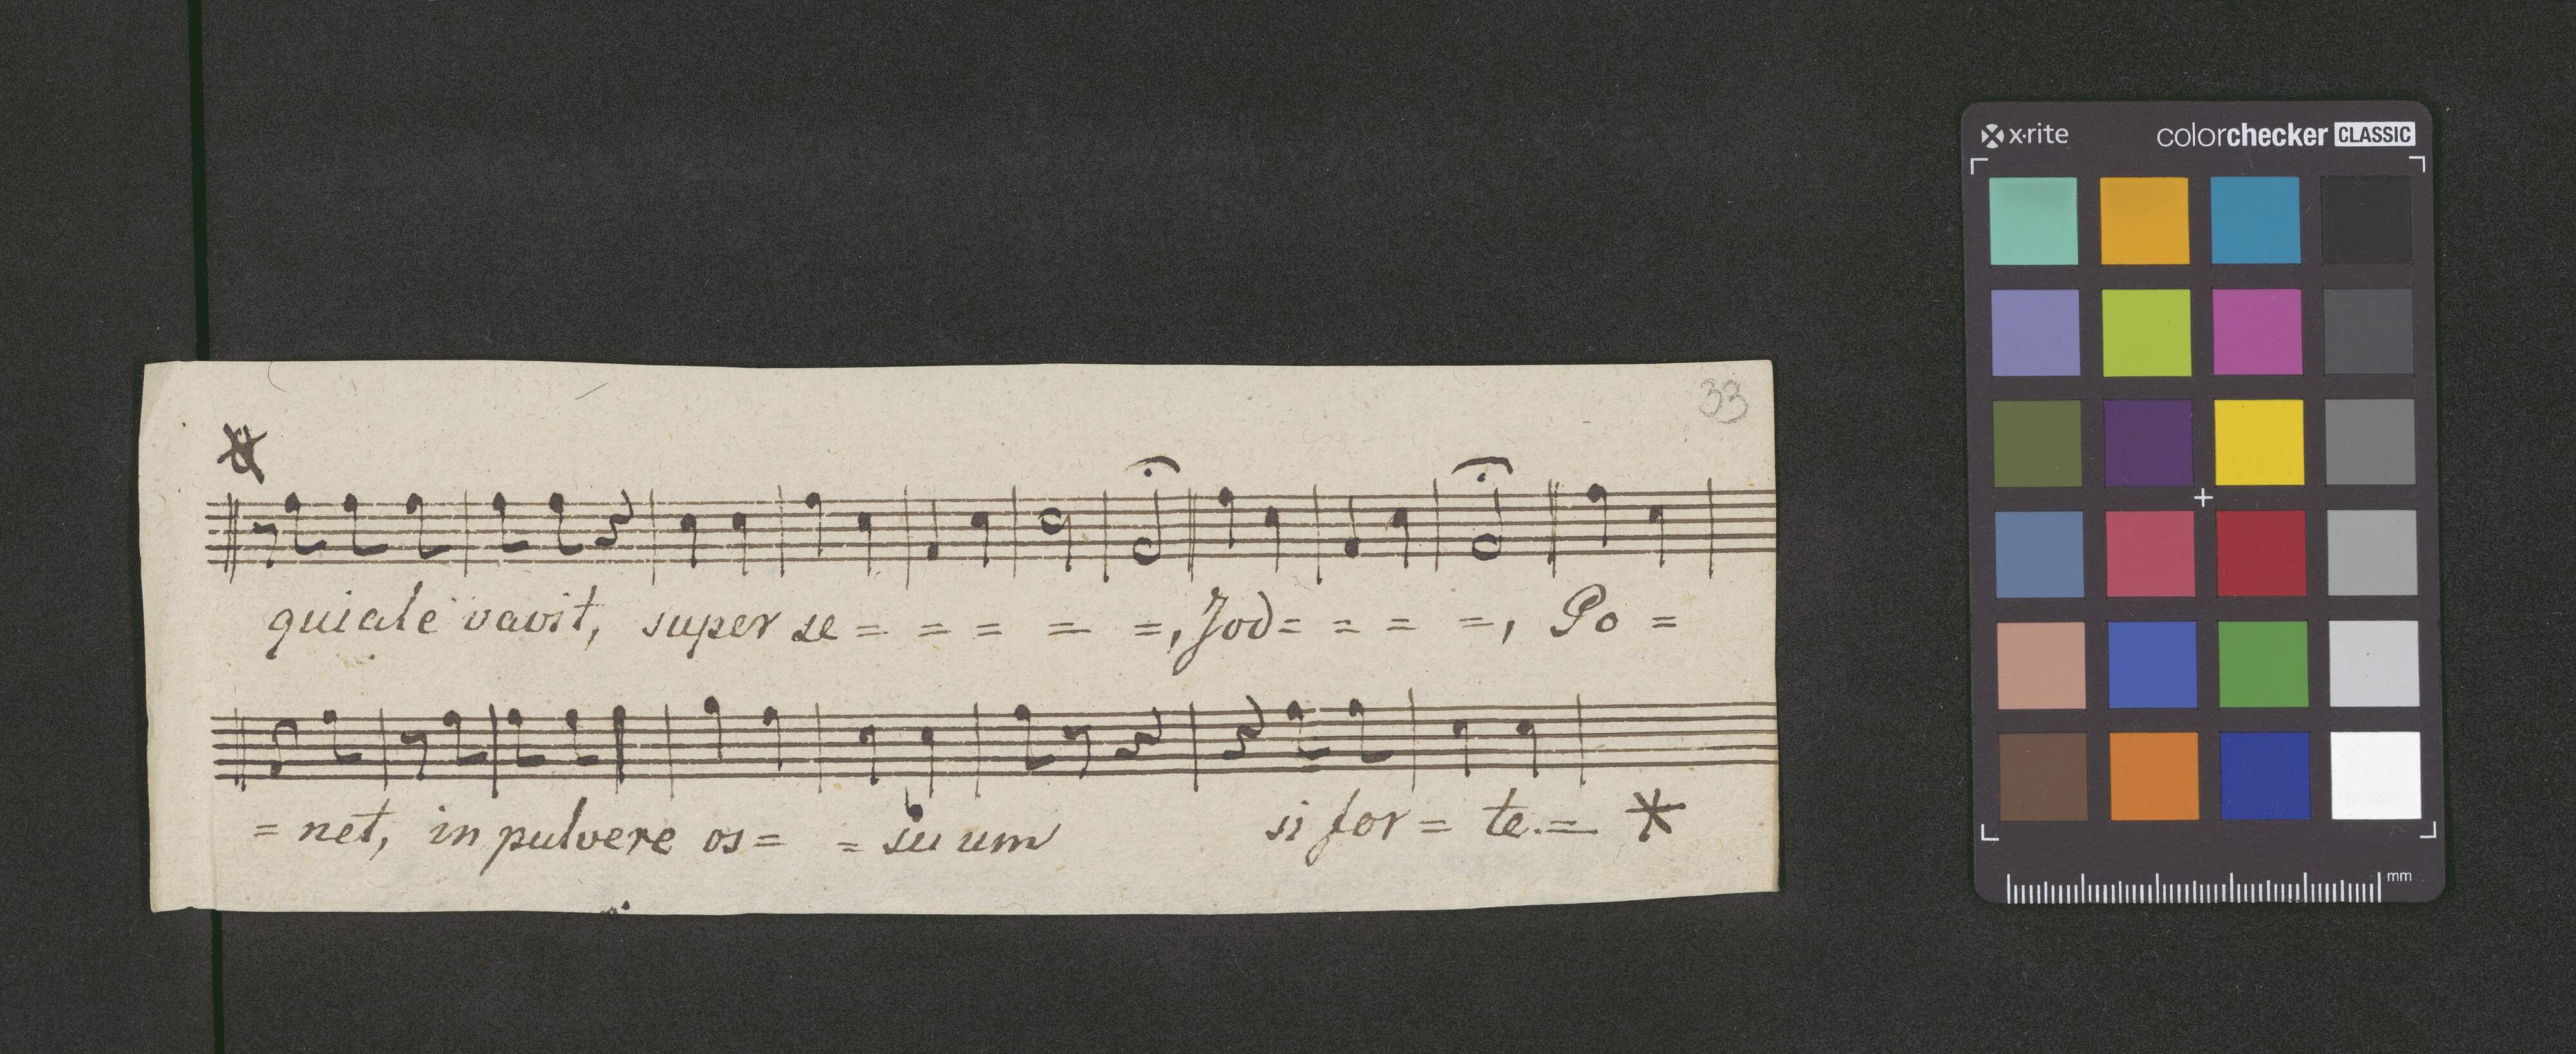 33
quiale vavit, super se = = = = =, Jod= = = =, Po =
= net, in pulvere os= = su um si for = te.= *
x·rite colorchecker CLASSIC
mm